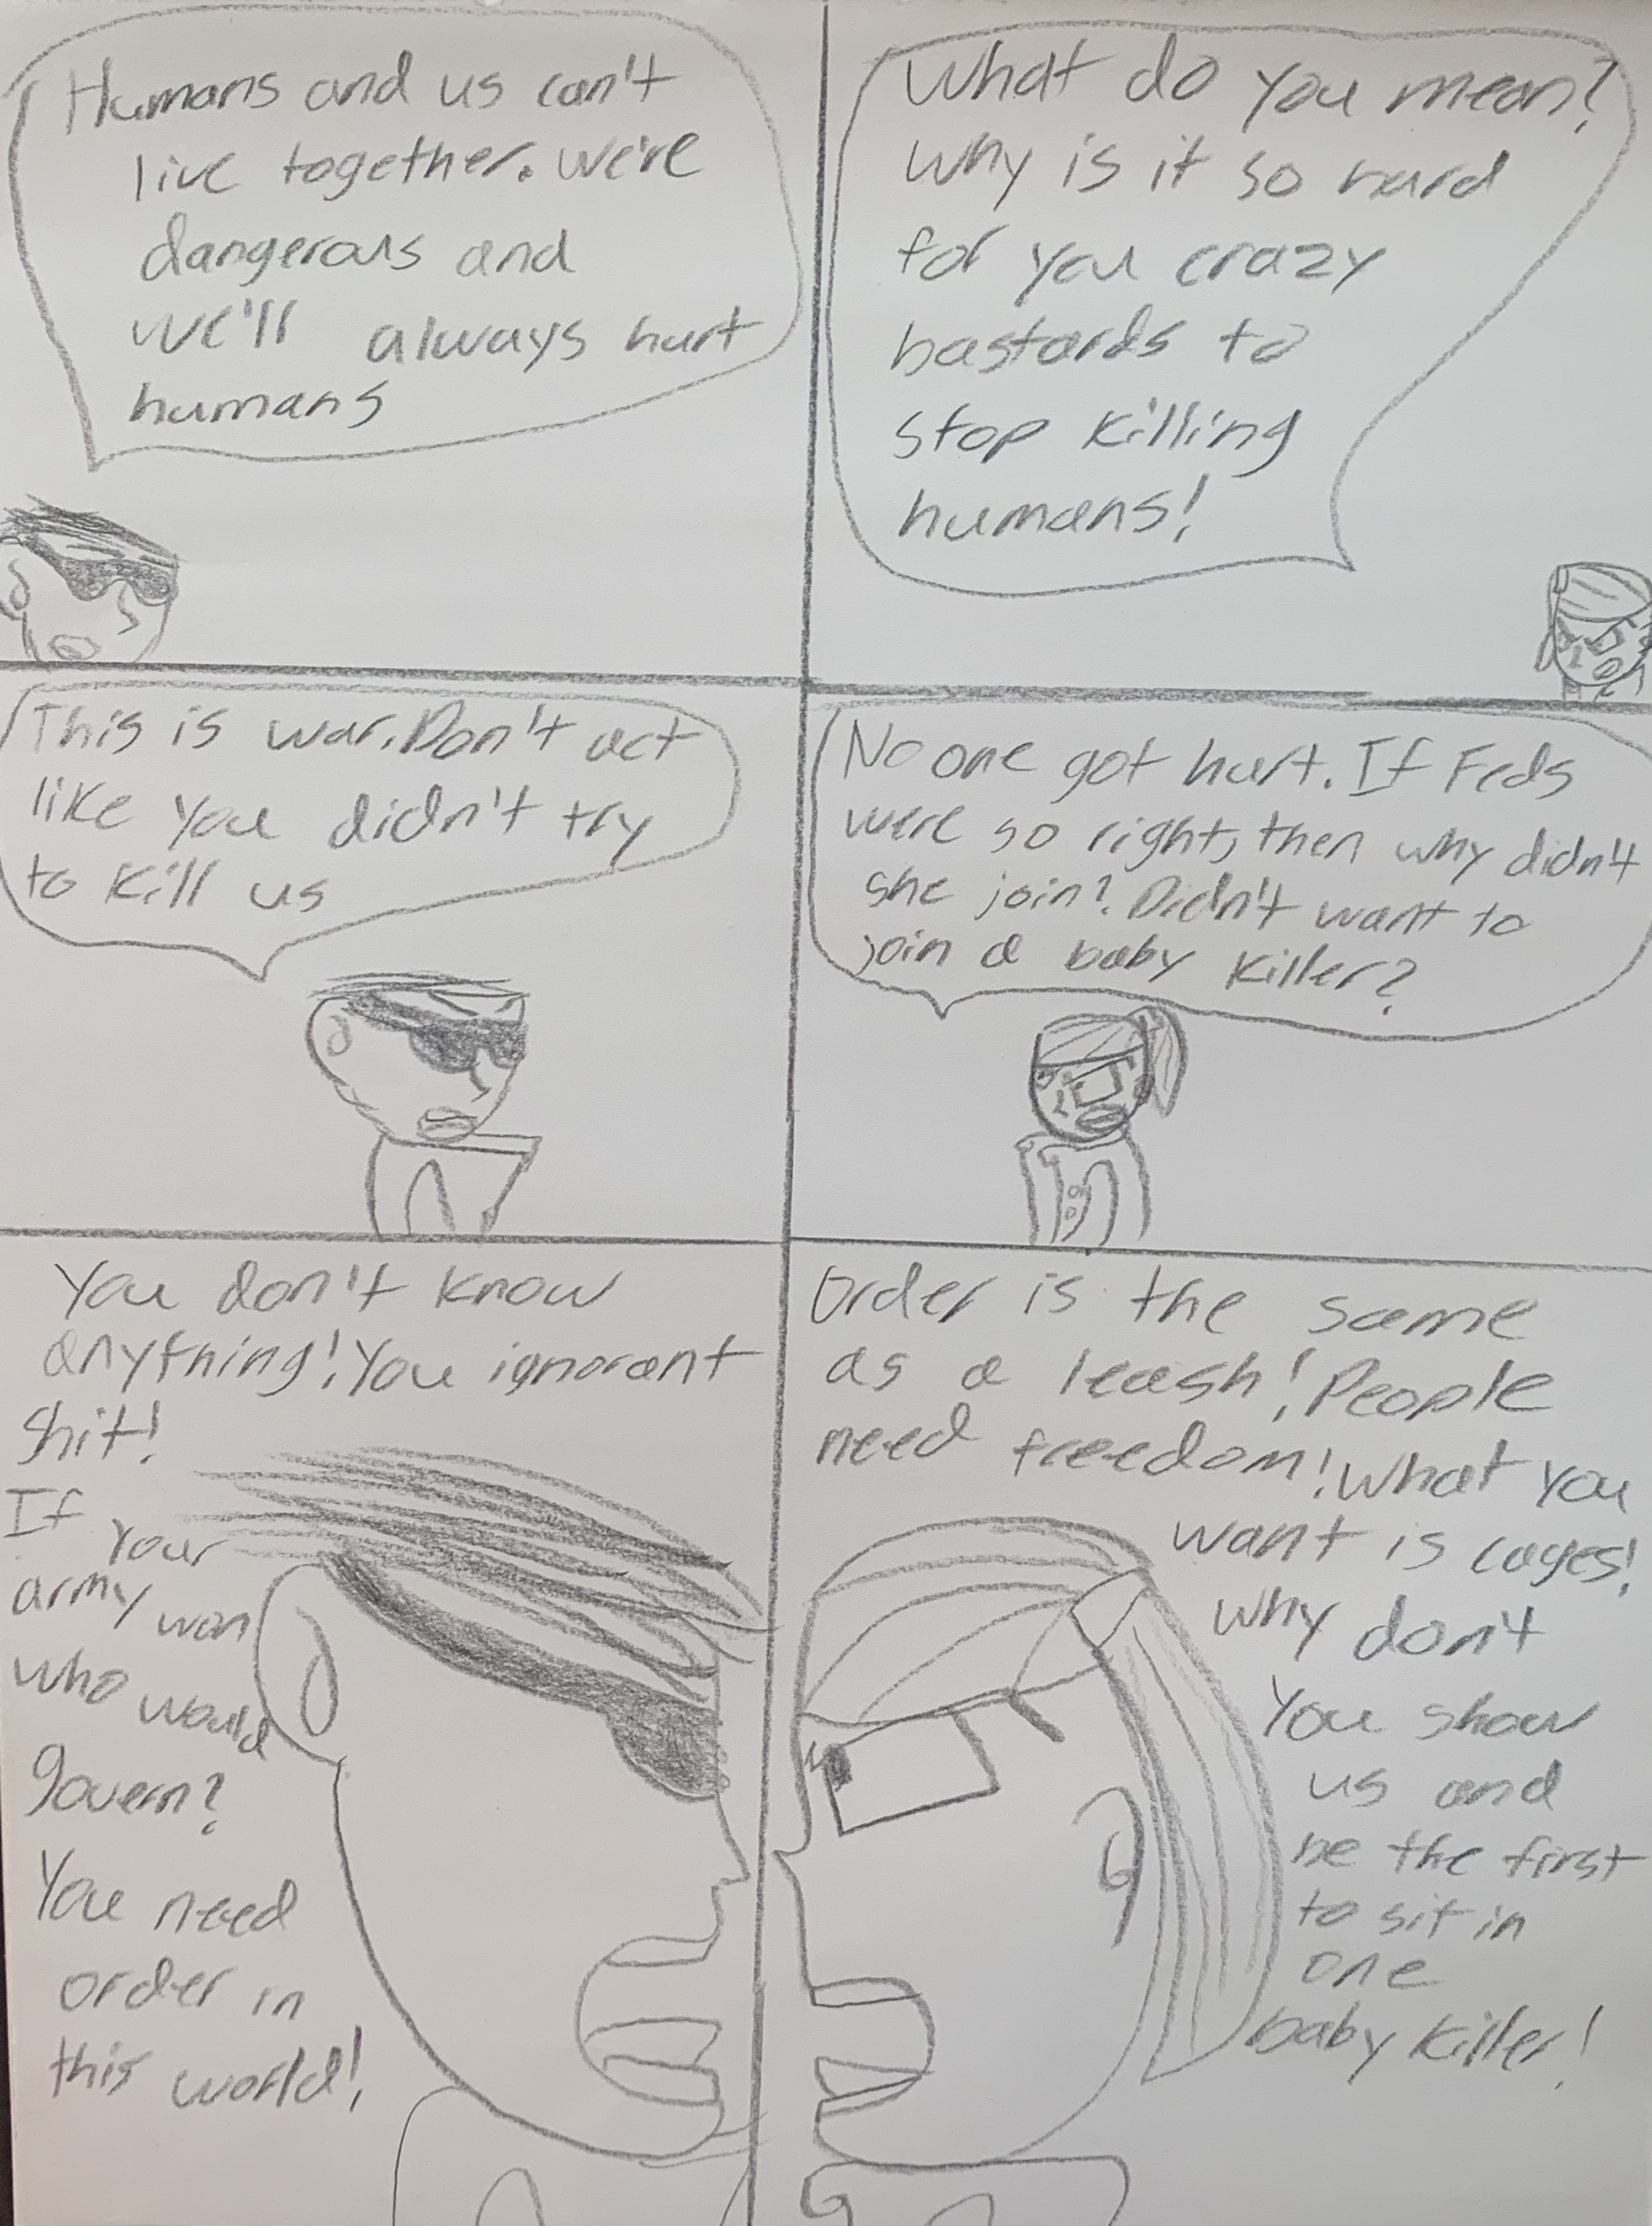 Humans and us can't
live together. We're
dangerous and
we'll always hurt
humans
What do you mean?
Why is it so hard
for you crazy
bastards to
stop killing
humans!
This is war. Don't act
like you didn't try
to kill us
No one got hurt. If Feds
were so right, then why didn't
she join? Didn't want to
join a baby killer?
You don't know
anything! You ignorant
shit!
If your
army won
who would
govern?
You need
order in
this world!
Order is the same
as a leash! People
need freedom! What you
want is cages!
Why don't
you show
us and
be the first
to sit in
one
baby killer!